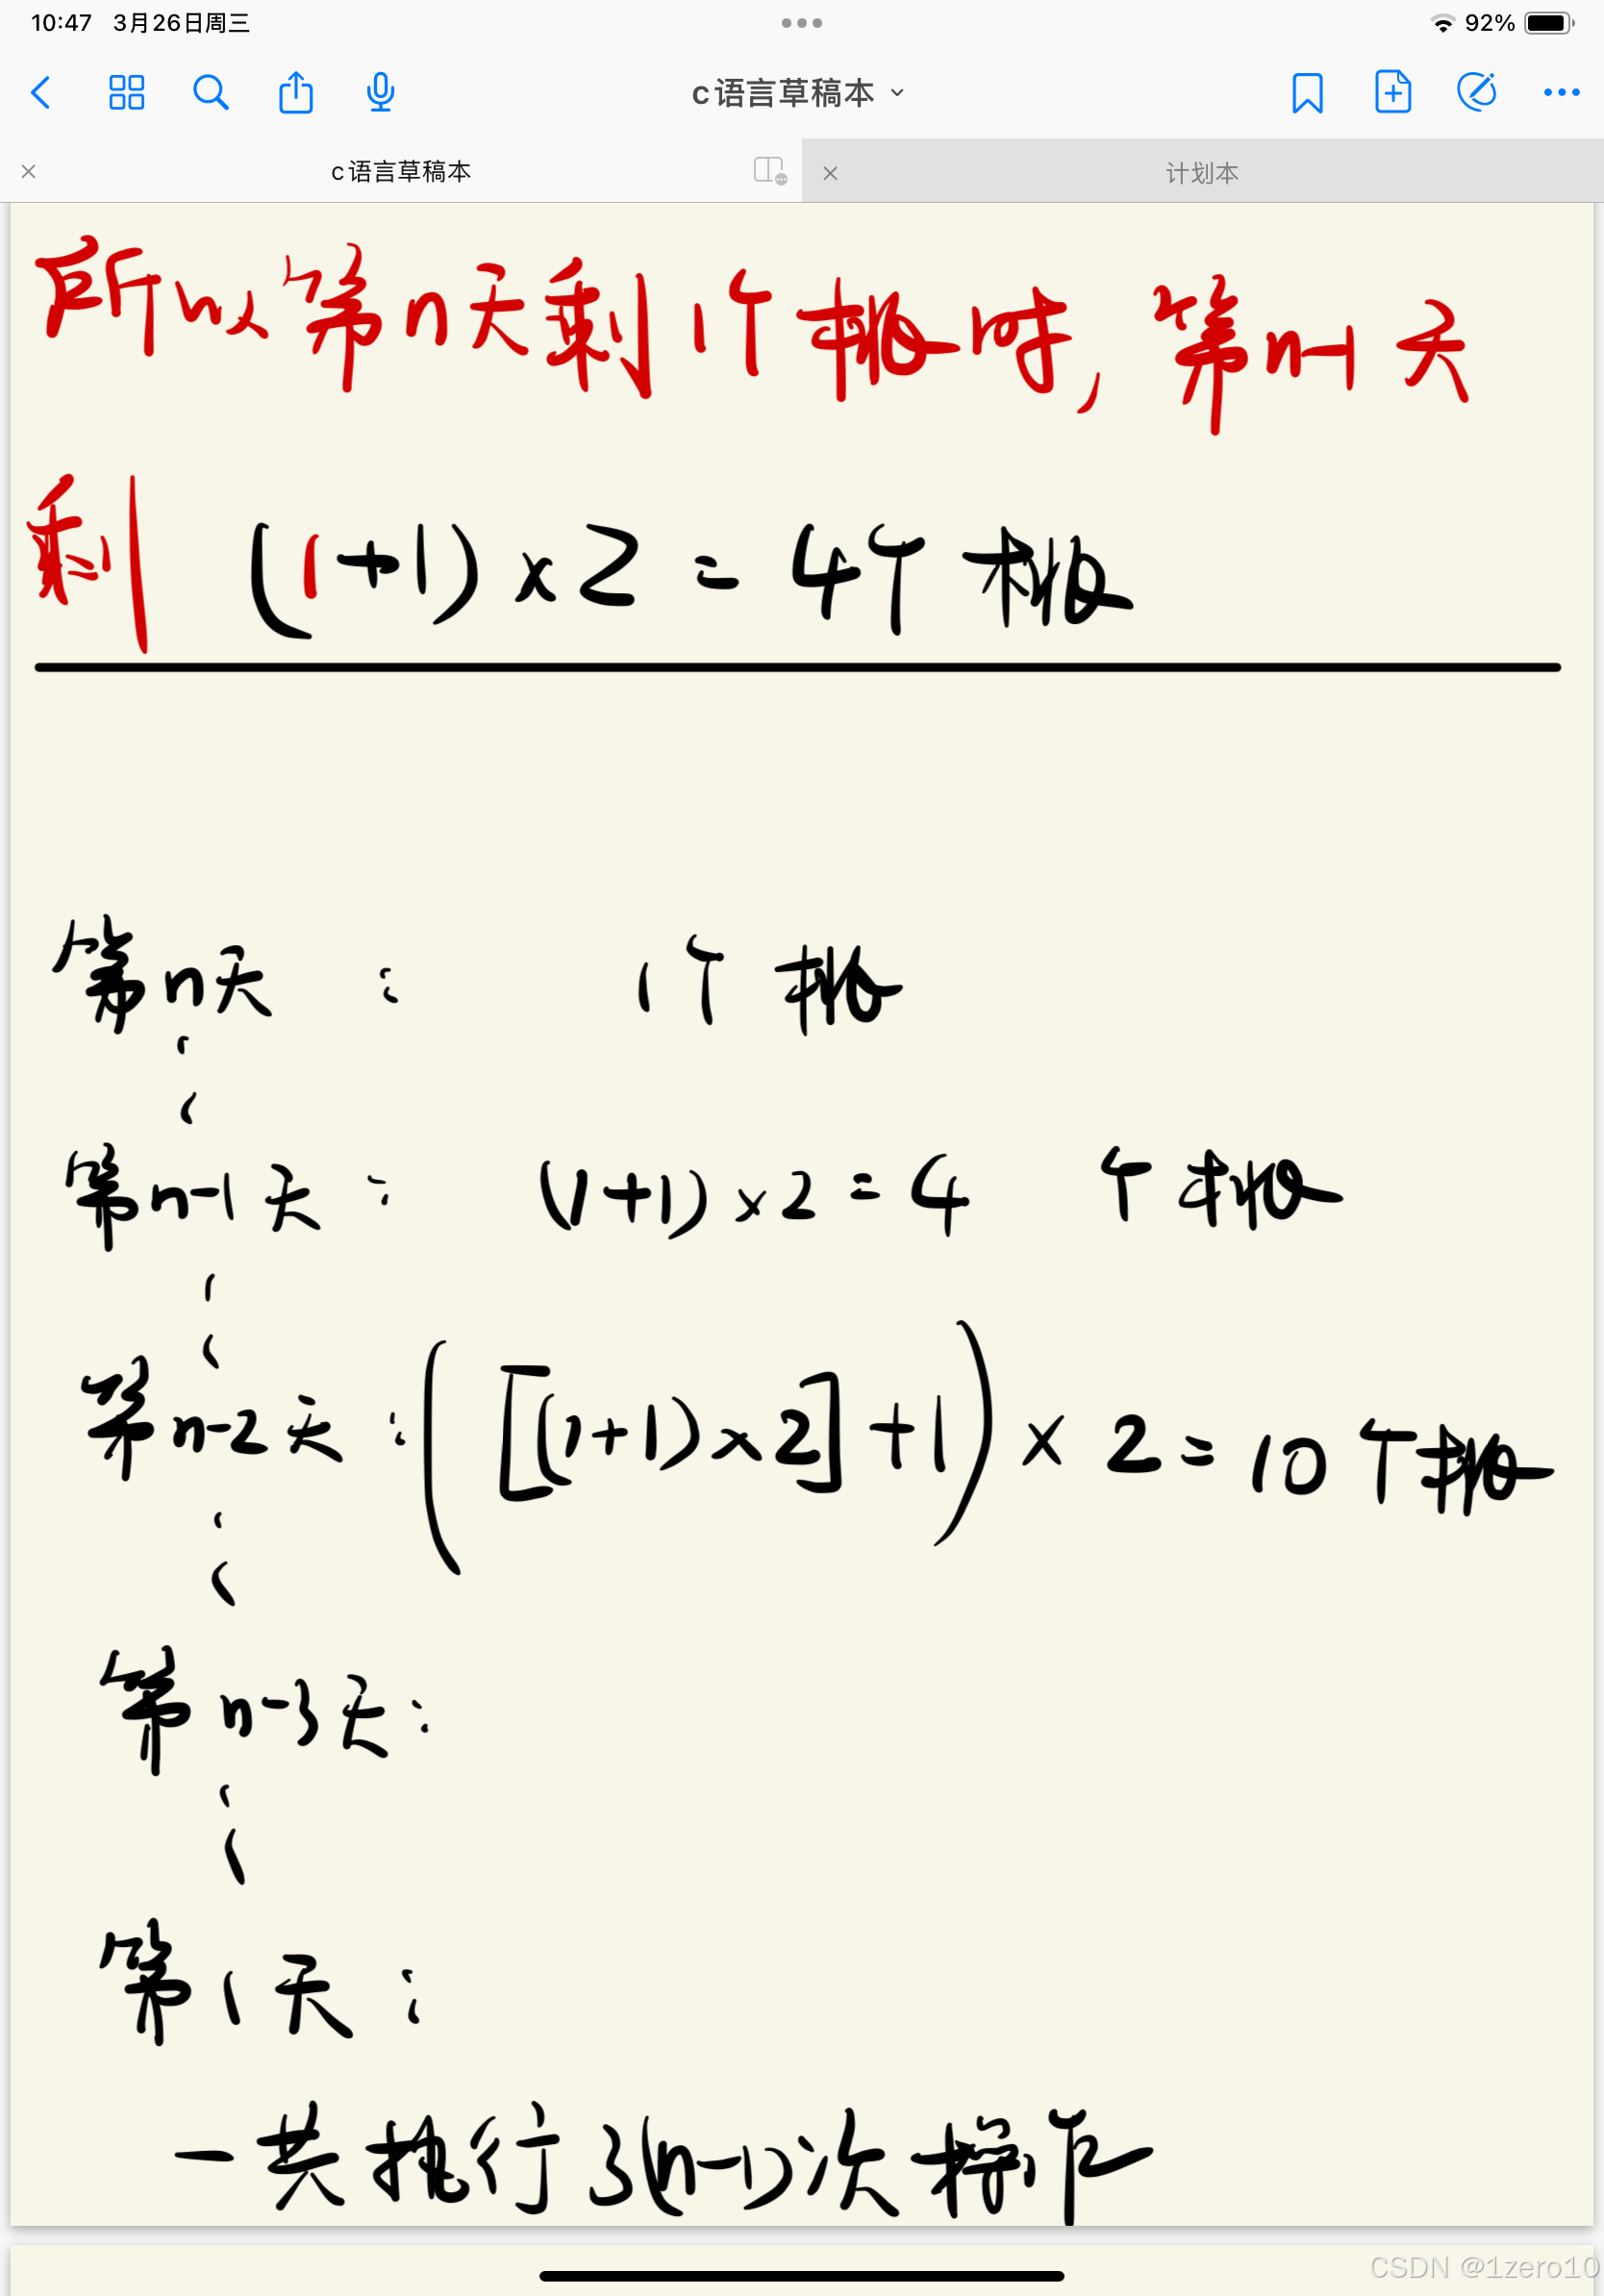 10:47 3月26日周三
92%
c语言草稿本
c语言草稿本
计划本
所以第n天剩1个桃时,第n-1天
剩 (1+1)×2=4个桃
第n天: 1个桃
第n-1天: (1+1)×2=4 个桃
第n-2天:([(1+1)×2]+1)×2=10个桃
第n-3天:
第1天:
一共执行了(n-1)次操作
CSDN @1zero10